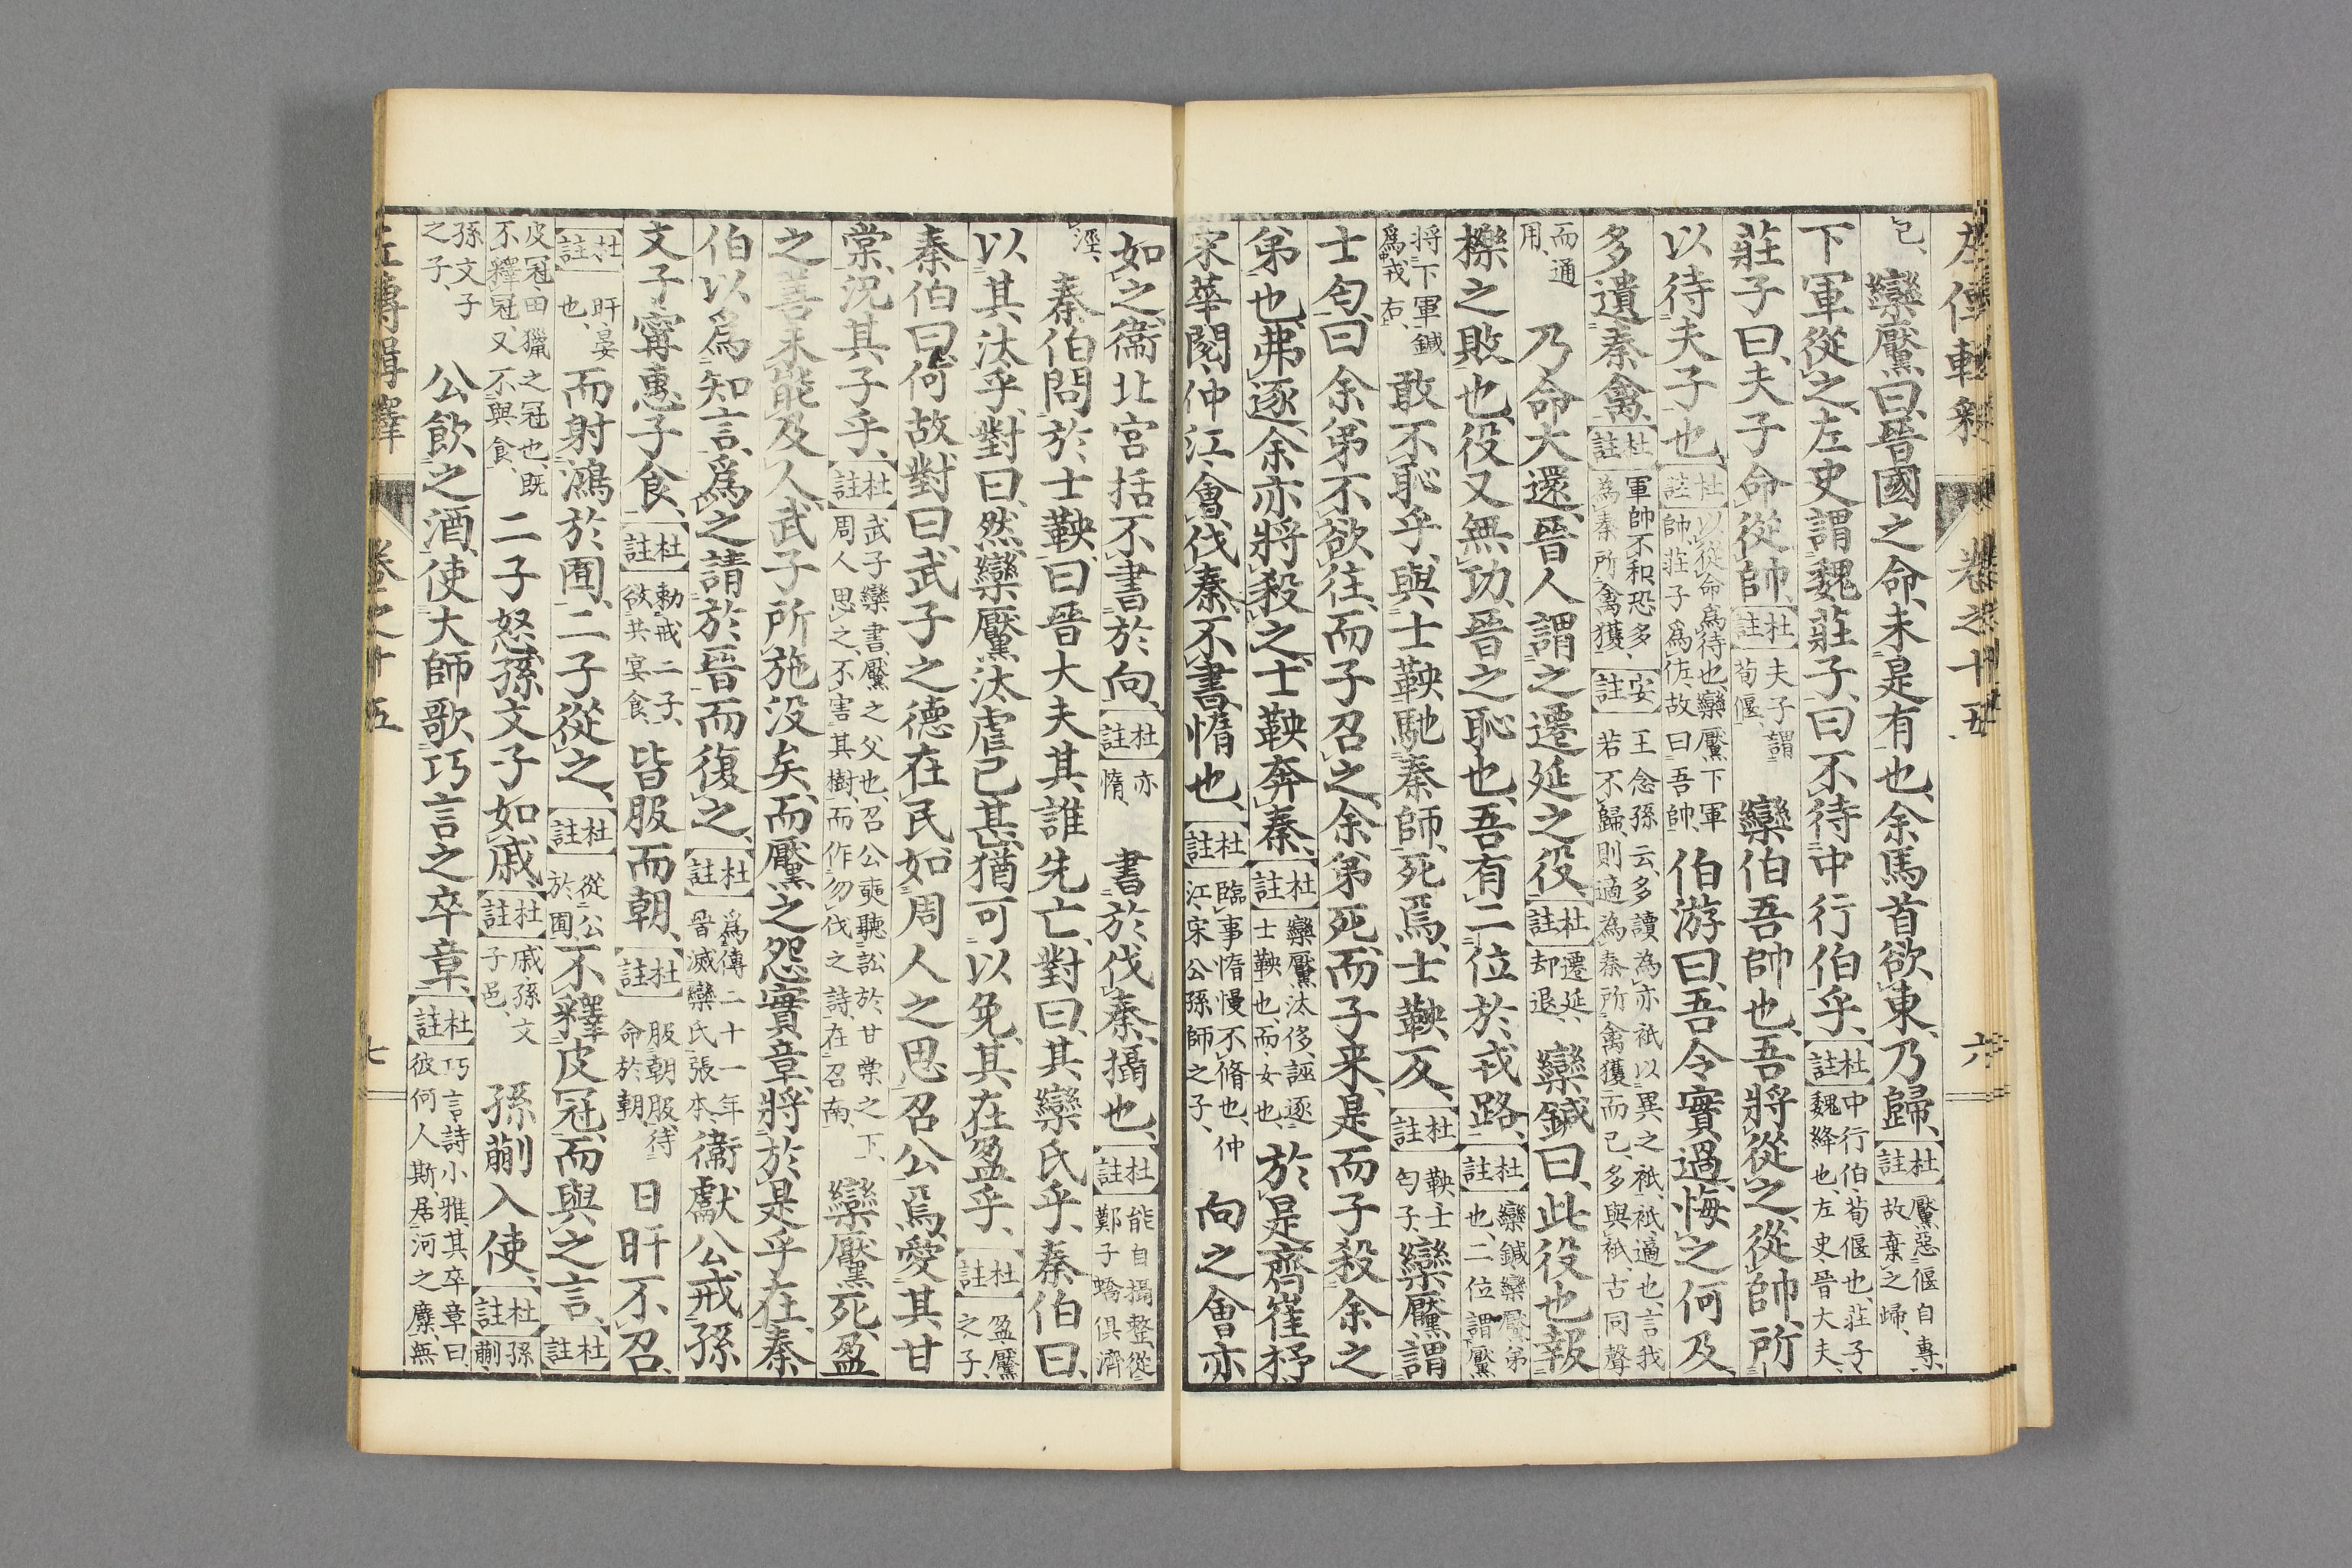 左傳輯釋 卷之十五 六
乞、欒黶曰、晉國之命、未是有也、余馬首欲東、乃歸、杜註黶惡偃自專、故棄之歸、
下軍從之、左史謂魏莊子、曰不待中行伯乎、杜註中行伯、荀偃也、莊子、魏絳也、左史、晉大夫、
莊子曰、夫子命從帥、杜註夫子謂荀偃、欒伯吾帥也、吾將從之、從帥、所
以待夫子也、杜註以從命爲待也、欒黶下軍帥、莊子爲佐、故曰吾帥、伯游曰、吾令實過、悔之何及、
多遺秦禽、杜註軍帥不和、恐多爲秦所禽獲、安註王念孫云、多讀為亦祇以異之祇、祇、適也、言我若不歸、則適為秦所禽獲而已、多與祇、古同聲
而通用、乃命大還、晉人謂之遷延之役、杜註遷延、却退、欒鍼曰、此役也、報
櫟之敗也、役又無功、晉之恥也、吾有二位於戎路、杜註欒鍼、欒黶弟也、二位、謂黶
將下軍、鍼爲戎右、敢不恥乎、與士鞅馳秦師、死焉、士鞅反、杜註鞅、士匄子、欒黶謂
士匄曰、余弟不欲往、而子召之、余弟死、而子来、是而子殺余之
弟也、弗逐、余亦將殺之、士鞅奔秦、杜註欒黶汰侈、誣逐士鞅也、而、女也、於是齊崔杼
宋華閱、仲江、會伐秦、不書、惰也、杜註臨事惰慢不脩也、仲江、宋公孫師之子、向之會亦
如之、衞北宮括不書於向、杜註亦惰、書於伐秦、攝也、杜註能自攝整、從鄭子蟜俱濟
涇、秦伯問於士鞅、曰晉大夫其誰先亡、對曰、其欒氏乎、秦伯曰、
以其汰乎、對曰、然、欒黶汰虐已甚、猶可以免、其在盈乎、杜註盈、黶之子、
秦伯曰、何故、對曰、武子之德在民、如周人之思召公焉、愛其甘
棠、況其子乎、杜註武子、欒書、黶之父也、召公奭聽訟於甘棠之下、周人思之、不害其樹、而作勿伐之詩、在召南、欒黶死、盈
之善未能及人、武子所施没矣、而黶之怨實章、將於是乎在、秦
伯以爲知言、爲之請於晉而復之、杜註爲傳二十一年晉滅欒氏張本、衞獻公戒孫
文子甯惠子食、杜註勅戒二子、欲共宴食、皆服而朝、杜註服朝服、待命於朝、日旰不召、
杜註旰、晏也、而射鴻於囿、二子從之、杜註從公於囿、不釋皮冠、而與之言、杜註
皮冠、田獵之冠也、既不釋冠、又不與食、二子怒、孫文子如戚、杜註戚、孫文子邑、孫蒯入使、杜註孫蒯、
孫文子之子、公飲之酒、使大師歌巧言之卒章、杜註巧言、詩小雅、其卒章曰、彼何人斯、居河之麋、無
左傳輯釋 卷之十五 七